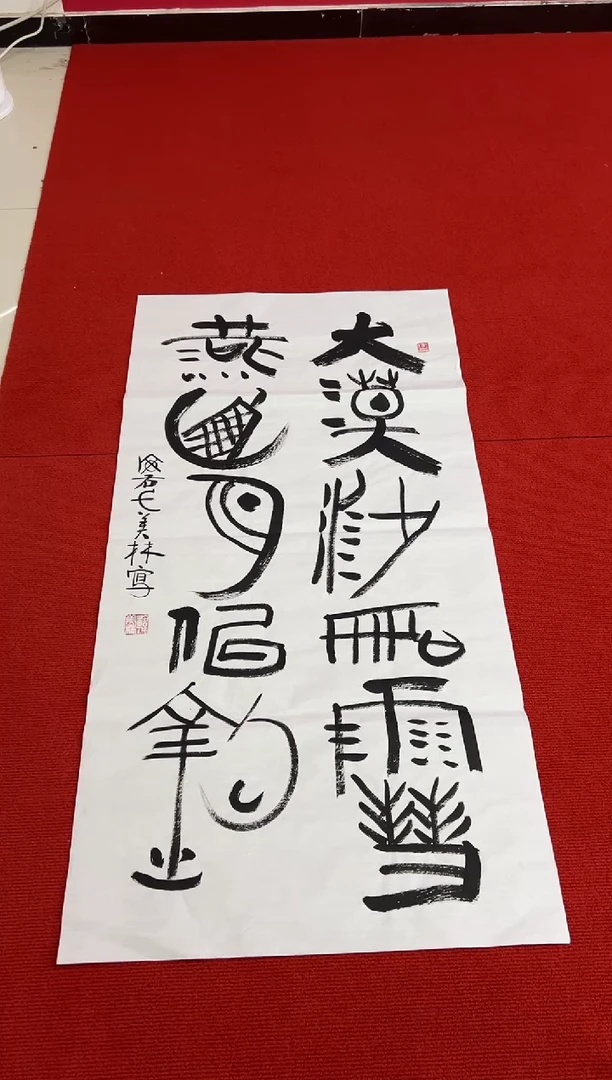 大漠沙如雪
燕山月似钩
美林写